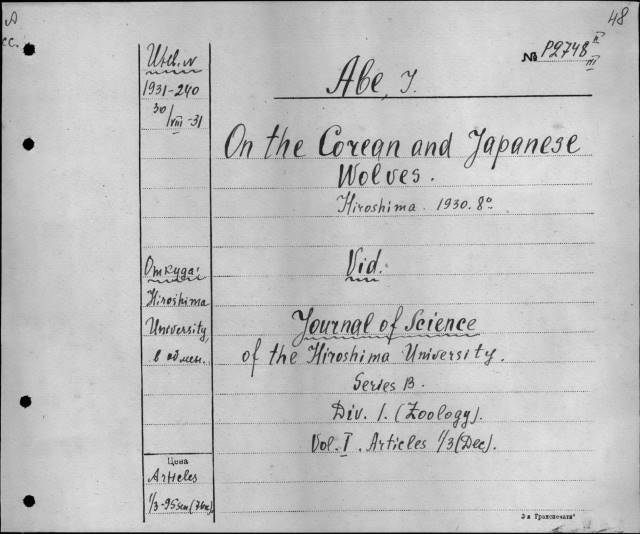 A
cc.
48
Uteb. N
1931-240
30/VIII-31
№ P2748 II/III
Abe, Y.
On the Corean and Japanese
Wolves.
Hiroshima. 1930. 8°.
Откуда:
Hiroshima
University,
в обмен.
Vid.
Journal of Science
of the Hiroshima University.
Series B.
Div. 1. (Zoology).
Vol. I. Articles 1/3 (Dec).
Цена
Articles
1/3-95 sen